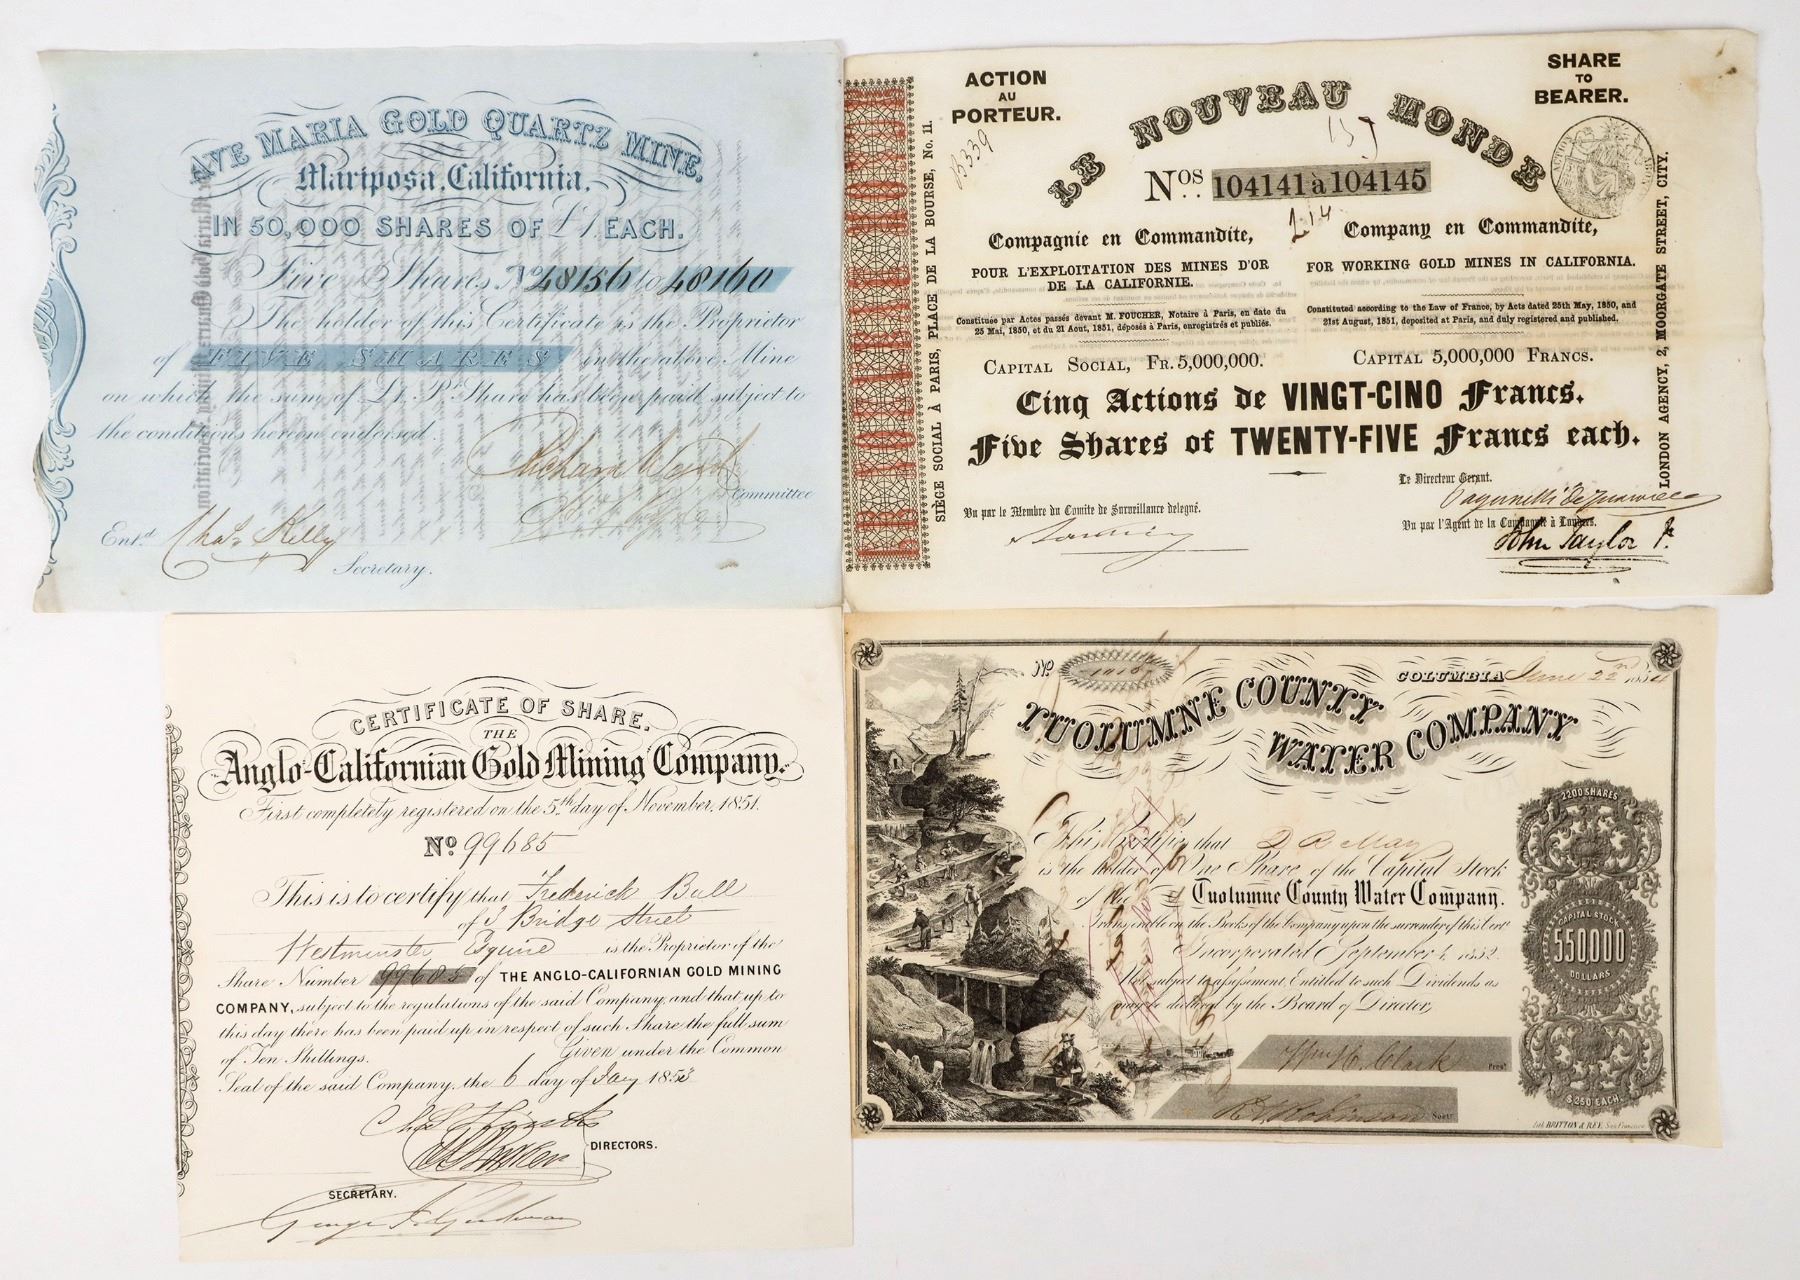 AVE MARIA GOLD QUARTZ MINE,
Mariposa, California,
IN 50,000 SHARES OF £1 EACH.
Five Shares Nº 48156 to 48160
The holder of this Certificate is the Proprietor
of FIVE SHARES in the above Mine
on which the sum of £1 Pr. Share has been paid subject to
the conditions hereon endorsed.
Committee
Entd. Chas. Kelly
Secretary.
ACTION
AU
PORTEUR.
SHARE
TO
BEARER.
LE NOUVEAU MONDE
Nos. 104141 à 104145
Compagnie en Commandite,
POUR L'EXPLOITATION DES MINES D'OR
DE LA CALIFORNIE.
Constituée par Actes passés devant M. FOUCHER, Notaire à Paris, en date du
25 Mai, 1850, et du 21 Aout, 1851, déposés à Paris, enregistrés et publiés.
CAPITAL SOCIAL, FR. 5,000,000.
Company en Commandite,
FOR WORKING GOLD MINES IN CALIFORNIA.
Constituted according to the Law of France, by Acts dated 25th May, 1850, and
21st August, 1851, deposited at Paris, and duly registered and published.
CAPITAL 5,000,000 FRANCS.
Cinq Actions de VINGT-CINQ Francs.
Five Shares of TWENTY-FIVE Francs each.
Le Directeur Gerant.
Vu par le Membre du Comite de Surveillance delegné.
Vu par l'Agent de la Compagnie à Londres.
John Taylor Jr.
SIÈGE SOCIAL À PARIS, PLACE DE LA BOURSE, No. 11.
LONDON AGENCY, 2, MOORGATE STREET, CITY.
CERTIFICATE OF SHARE.
THE
Anglo-Californian Gold Mining Company.
First completely registered on the 5th day of November, 1851.
No 99685
This is to certify that Frederick Bull
of 3 Bridge Street
Westminster Esquire is the Proprietor of the
Share Number 99685 of THE ANGLO-CALIFORNIAN GOLD MINING
COMPANY, subject to the regulations of the said Company, and that up to
this day there has been paid up in respect of such Share the full sum
of Ten Shillings. Given under the Common
Seal of the said Company, the 6 day of Jany 1853
DIRECTORS.
SECRETARY.
No
COLUMBIA June 22nd 1854
TUOLUMNE COUNTY
WATER COMPANY
This Certifies that D B May
is the holder of One Share of the Capital Stock
of the Tuolumne County Water Company.
Transferable on the Books of the Company upon the surrender of this Certe.
Incorporated September 4, 1852.
Not subject to assessment, Entitled to such Dividends as
may be declared by the Board of Directors,
Wm H. Clark Prest.
Robinson Secty.
2200 SHARES
CAPITAL STOCK
550,000
DOLLARS
$250 EACH.
Lith. BRITTON & REY. San Francisco